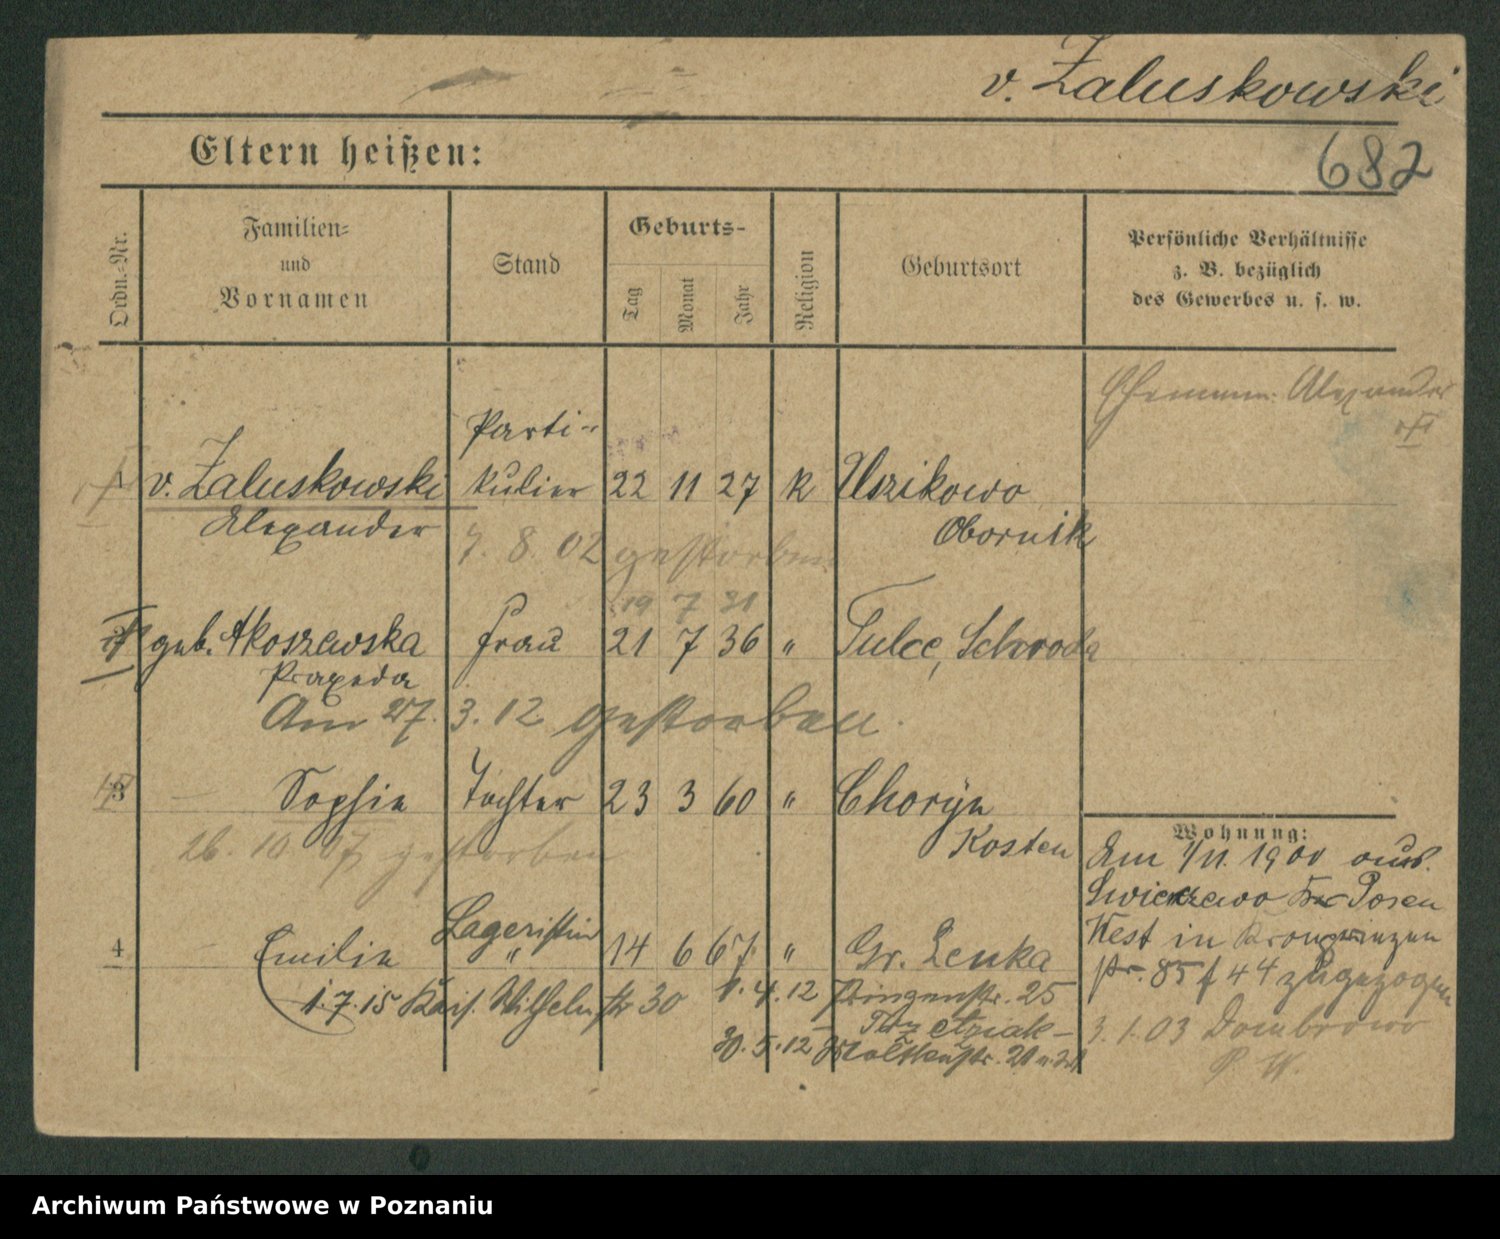 v. Zaluskowski
Eltern heißen:
682
Ordn.-Nr.
Familien-
und
Vornamen
Stand
Geburts-
Tag
Monat
Jahr
Religion
Geburtsort
Persönliche Verhältnisse
z. B. bezüglich
des Gewerbes u. s. w.
Ehemann: Alexander
Parti-
v. Zaluskowski kulier 22 11 27 K Uszikowo
Alexander Obornik
7. 8. 02 gestorben
19 7 31
geb. Akoszewska Frau 21 7 36 " Tulce, Schroda
Praxeda
Am 27. 3. 12 gestorben.
3 — Sophie Tochter 23 3 60 " Choryn
Kosten
26. 10 07 gestorben
Wohnung:
Am 1/11. 1900 aus
Posen
West in Kronprinzen
str. 85 f 44 zugezogen
3. 1. 03 Dombrowo
P. W.
4 — Emilie Lageristin 14 6 67 " Gr. Lenka
"
1. 7. 15 Kais. Wilhelm str 30
1. 4. 12 25
30. 5. 12
Archiwum Państwowe w Poznaniu